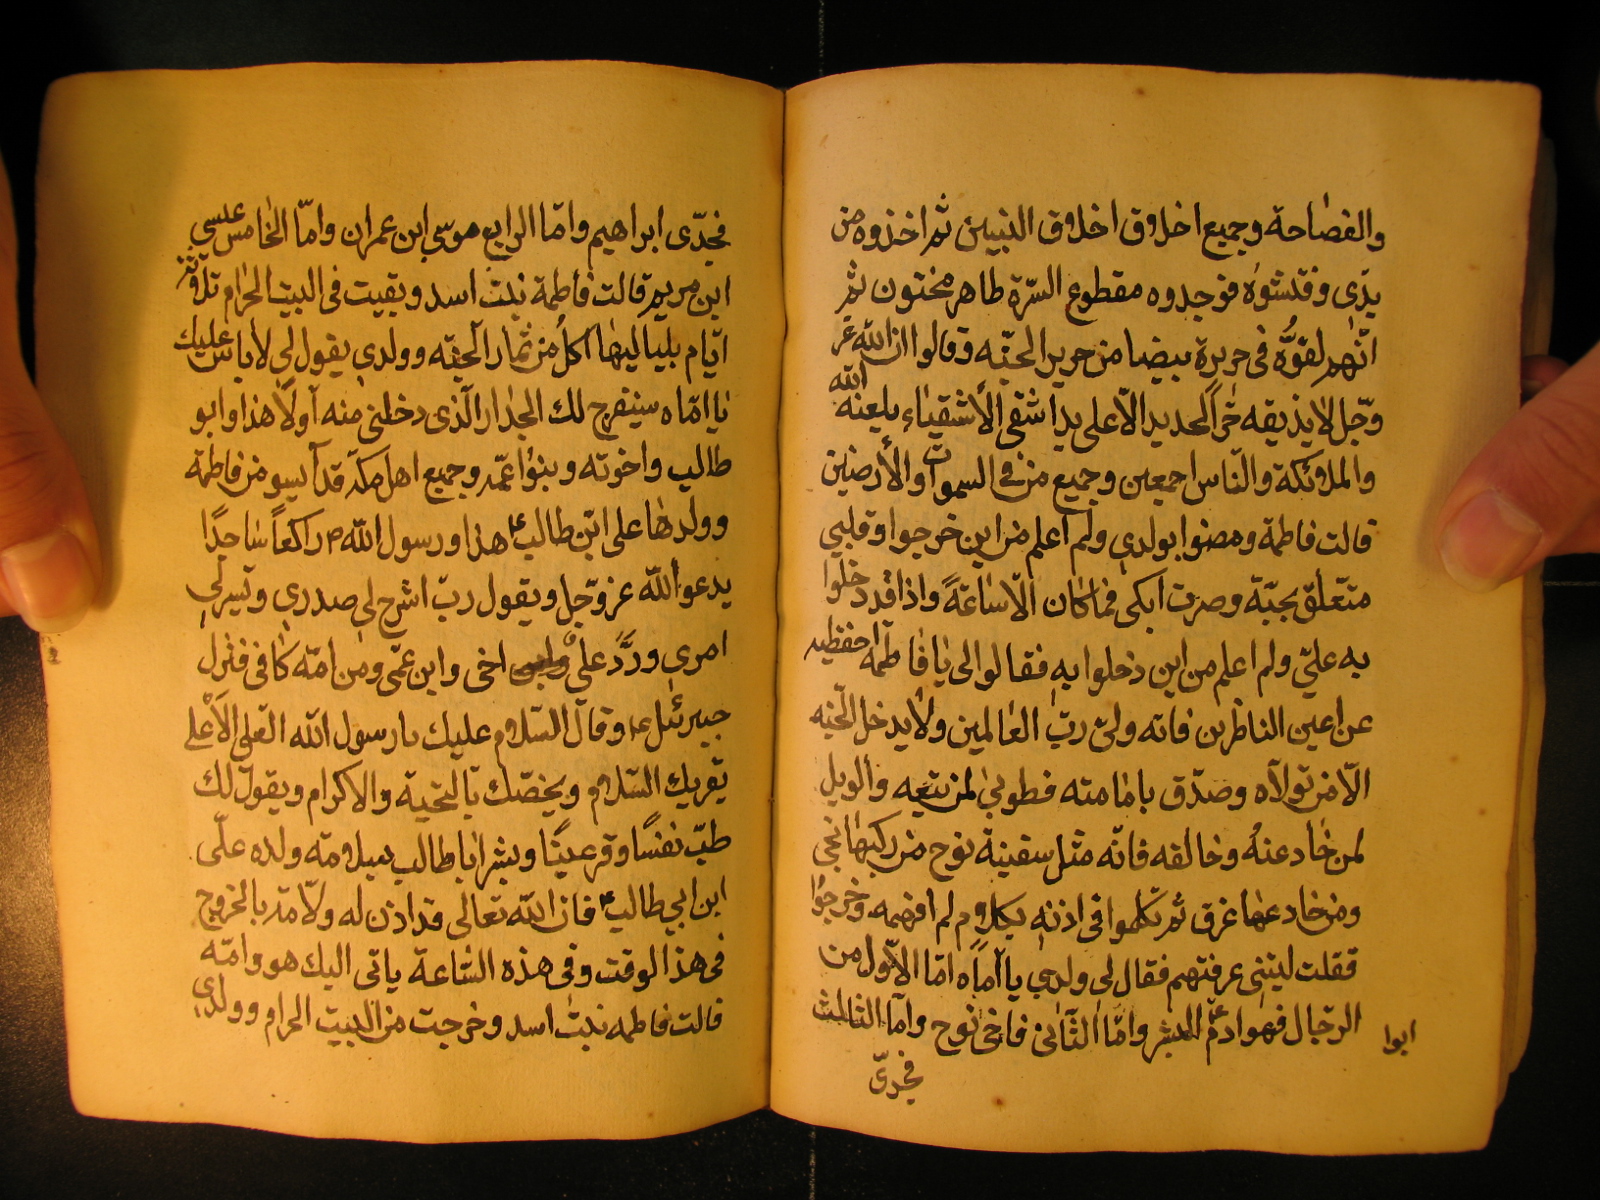 والفصاحة وجميع اخلاق اخلاق النبيين ثم اخذوه من
يدى وفتشوه فوجدوه مقطوع السرّة طاهر مختون ثم
انّهم لفوّه فى حريرة بيضا من حرير الجنّه وقالوا ان الله عز
وجل لا يذيقه حرّ الحديد الّا على يد اشقى الأشقياء يلعنه الله
والملائكة والناس اجمعين وجميع من فى السموات والأرضين
قالت فاطمة ومضوا بولدي ولم اعلم من اين خرجوا وقلبي
متعلق بحبّه وصرت ابكى فما كان الّا ساعةً واذا قد دخلوا
به عليّ ولم اعلم من اين دخلوا به فقالوا لى يا فاطمة احفظيه
عن اعين الناظرين فانه وليّ ربّ العالمين ولا يدخل الجنه
الّا من تولّاه وصدّق بامامته فطوبىٰ لمن تبعه والويل
لمن حاد عنهُ وخالفه فانّه مثل سفينة نوح من ركبها نجى
ومن حاد عنها غرق ثم تكلموا فى اذنه بكلام لم افهمه وخرجوا
فقلت ليتنى عرفتهم فقال لى ولدي يا اماه امّا الاوّل من
الرجال فهو ادمٌ ابوا البشر وامّا الثّانى فاخى نوح وامّا الثالث
فجدّى
فجدّى ابراهيم وامّا الرابع موسى ابن عمران وامّا الخامس عيسى
ابن مريم قالت فاطمة بنت اسد وبقيت فى البيت الحرام ثلاثة
ايّام بلياليها اكل من ثمار الجنّه وولدي يقول لى لا باس عليك
يا امّاه سينفرج لك الجدار الّذى دخلتى منه اولًا هذا وابو
طالب واخوته وبنوا عمّه وجميع اهل مكة قد آيسو من فاطمة
وولدها على ابن طالب ع هذا ورسول الله ص راكعًا ساجدًا
يدعو الله عز وجل ويقول ربّ اشرح لى صدري ويسر لي
امري وردّ على اخى وابن عمّى ومن امّه كافى فنزل
جبرئيل ع وقال السلام عليك يا رسول الله العلى الأعلى
يقريك السّلام ويخصّك بالتحية والاكرام ويقول لك
طبّ نفسًا وقر عينًا وبشر ابا طالب بسلامة ولده علّى
ابن ابي طالب ع فان الله تعالى قد اذن له ولامّه بالخروج
فى هذا الوقت وفى هذه السّاعة ياتى اليك هو وامّه
قالت فاطمه بنت اسد وخرجت من البيت الحرام وولدي